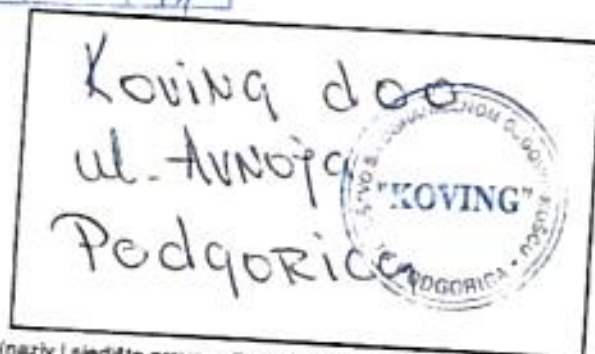 Koving doo
ul. AVNOJa
Podgorica
"KOVING"
PODGORICA
(naziv i sjedište